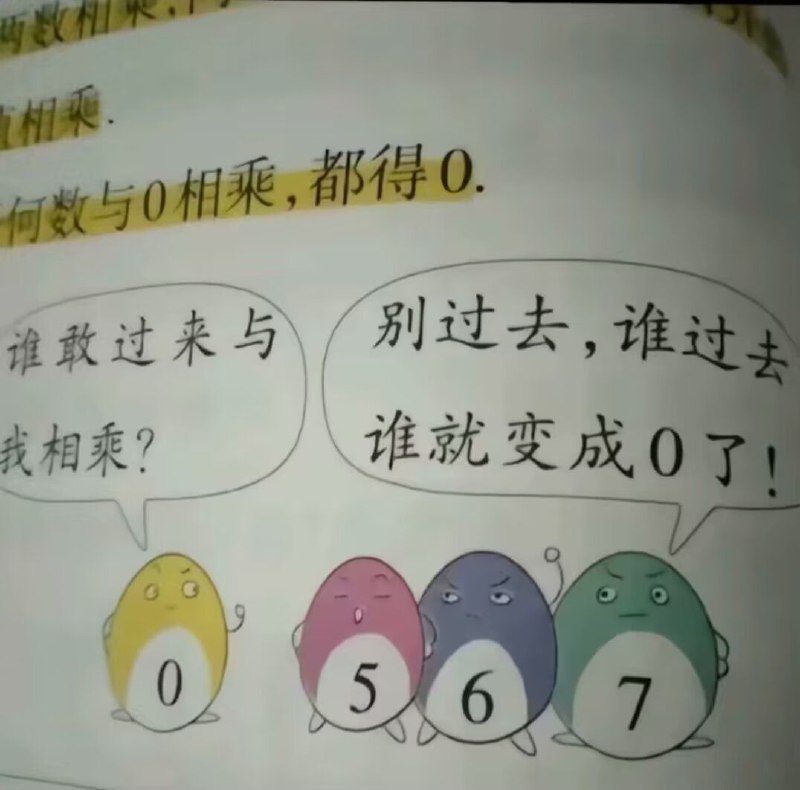 两数相乘,
值相乘.
何数与0相乘,都得0.
谁敢过来与
我相乘?
别过去,谁过去
谁就变成0了!
0
5
6
7